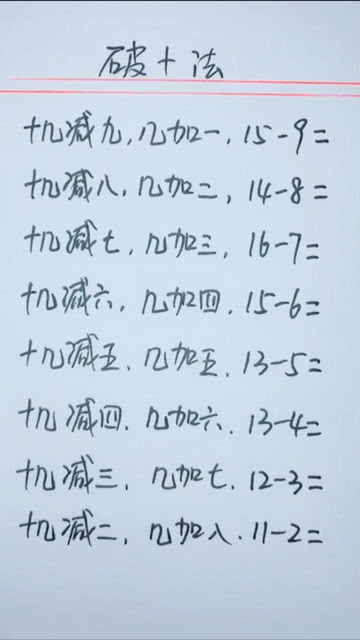 破十法
十几减九,几加一,15-9=
十几减八,几加二,14-8=
十几减七,几加三,16-7=
十几减六,几加四,15-6=
十几减五,几加五,13-5=
十几减四,几加六,13-4=
十几减三,几加七,12-3=
十几减二,几加八,11-2=